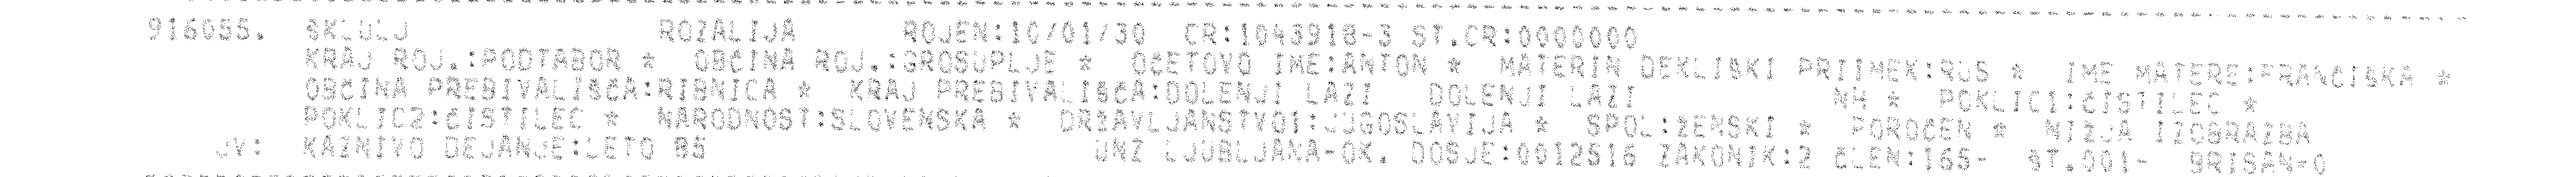 916055. ŠKLULJ ROZALIJA ROJEN:10/01/30 CR:1043918-3 ST.CR:0000000
KRAJ ROJ.:PODTABOR * OBČINA ROJ.:GROSUPLJE * OČETOVO IME:ANTON * MATERIN DEKLIŠKI PRIIMEK:RUS * IME MATERE:FRANČIŠKA *
OBČINA PREBIVALIŠČA:RIBNICA * KRAJ PREBIVALIŠČA:DOLENJI LAZI DOLENJI LAZI NH * POKLIC1:ČISTILEC *
POKLIC2:ČISTILEC * NARODNOST:SLOVENSKA * DRŽAVLJANSTVO1:JUGOSLAVIJA * SPOL:ŽENSKI * POROČEN * NIŽJA IZOBRAZBA
JV: KAZNIVO DEJANJE:LETO 85 UNZ LJUBLJANA-OK. DOSJE:0012516 ZAKONIK:2 ČLEN:165- ŠT.001- BRISAN=0